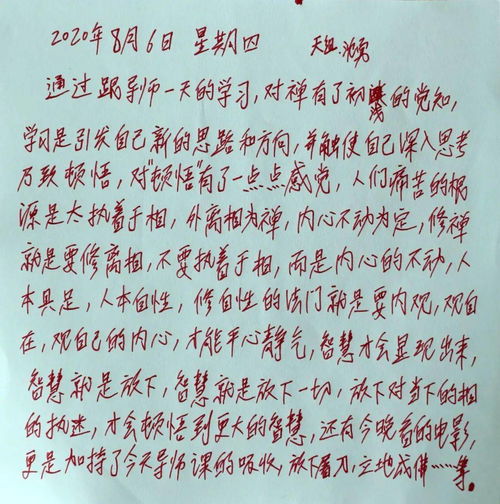 2020年8月6日 星期四 天组:沈勇
通过跟导师一天的学习,对禅有了初浅的觉知,
学习是引发自己新的思路和方向,并触使自己深入思考
乃致顿悟,对"顿悟"有了一点点感觉,人们痛苦的根
源是太执着于相,外离相为禅,内心不动为定,修禅
就是要修离相,不要执着于相,而是内心的不动,人
本具足,人本自性,修自性的法门就是要内观,观自
在,观自己的内心,才能平心静气,智慧才会显现出来,
智慧就是放下,智慧就是放下一切,放下对当下的相
的执迷,才会顿悟到更大的智慧,还有今晚看的电影,
更是加持了今天导师课的吸收,放下屠刀,立地成佛……等。